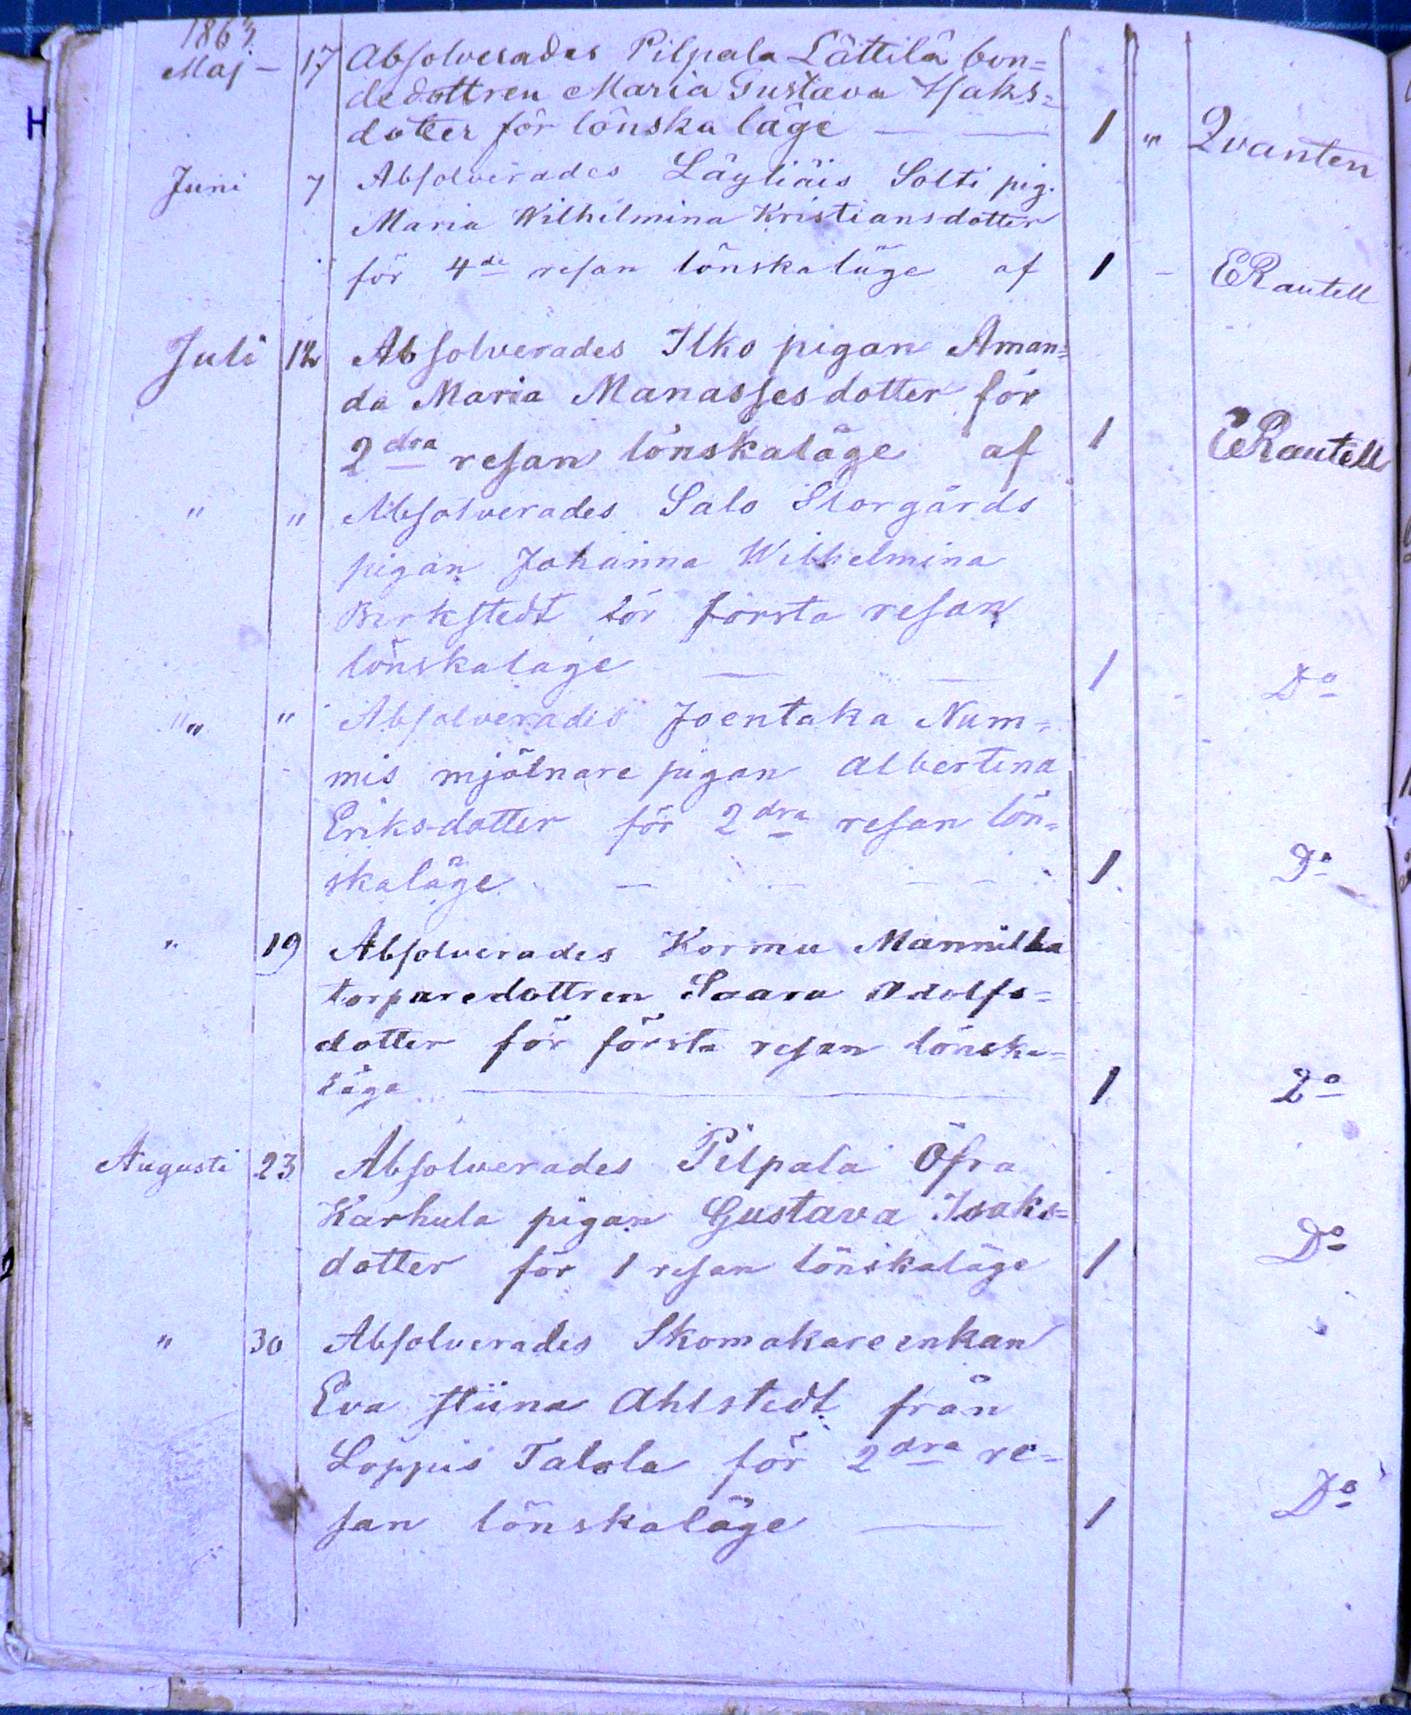 1863
Maj – 17 Absolverades Pilpala Lättilä bon=
dedottren Maria Gustava Isaks=
dotter för lönska läge — — 1 " Qvanten
Juni 7 Absolverades Läyliäis Solti pig.
Maria Wilhelmina Kristiansdotter
för 4de resan lönskaläge af 1 – ERautell
Juli 12 Absolverades Ilko pigan Aman=
da Maria Manassesdotter för
2dra resan lönskaläge af 1 ERautell
" " Absolverades Salo Storgårds
pigan Johanna Wilhelmina
Berkstedt för första resan
lönskaläge — — 1 - Do
" " Absolverades Joentaka Num=
mis mjölnare pigan Albertina
Eriksdotter för 2dra resan lön=
skaläge — — — — 1. Do
" 19 Absolverades Kormu Mannila
torparedottren Saara Adolfs=
dotter för första resan lönska=
läge — 1 Do
Augusti 23 Absolverades Pilpala Öfra
Karhula pigan Gustava Isaks=
dotter för 1 resan lönskaläge 1 Do
" 30 Absolverades Skomakareenkan
Eva Stiina Ahlstedt från
Loppis Talola för 2dra re=
san lönskaläge — 1 Do
H